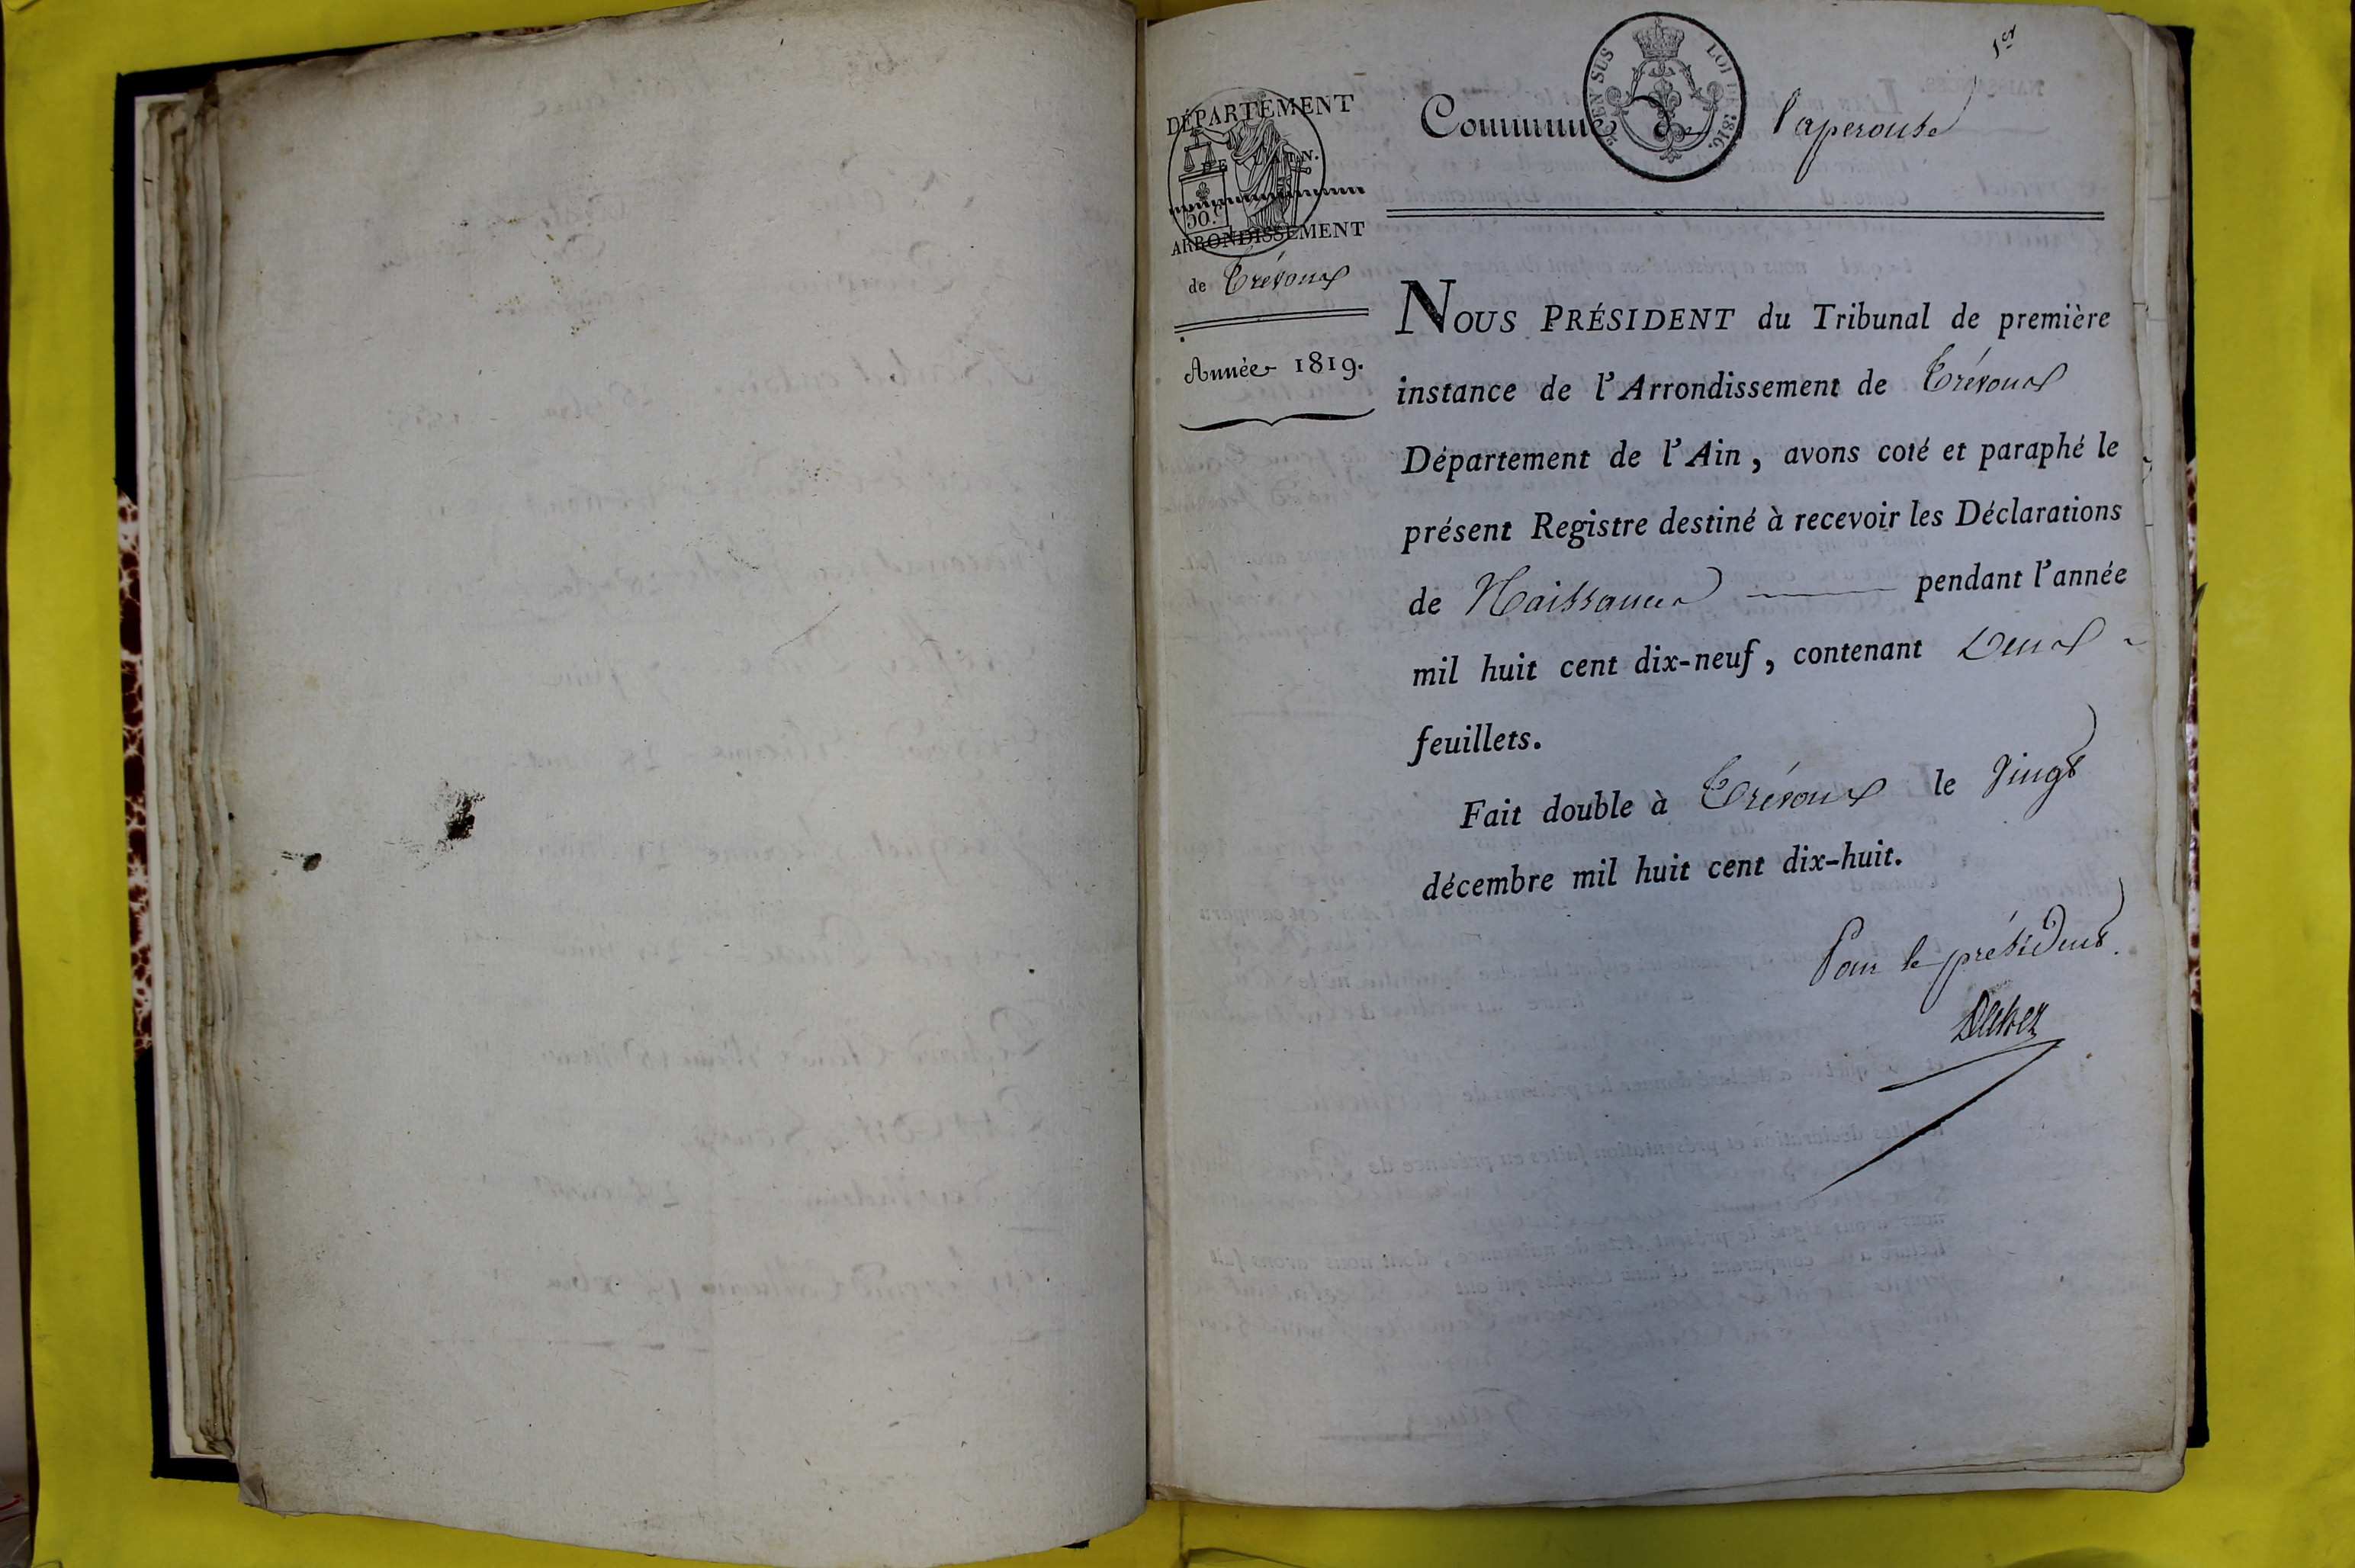 1er
DÉPARTEMENT
DE L'AIN.
50 C
ARRONDISSEMENT
de Trévoux
Année 1819.
EN SUS LOI DE 1816.
Commune de Laperouse
NOUS PRÉSIDENT du Tribunal de première
instance de l'Arrondissement de Trévoux
Département de l'Ain, avons coté et paraphé le
présent Registre destiné à recevoir les Déclarations
de Naissances pendant l'année
mil huit cent dix-neuf, contenant Deux
feuillets.
Fait double à Trévoux le Vingt
décembre mil huit cent dix-huit.
Pour le président.